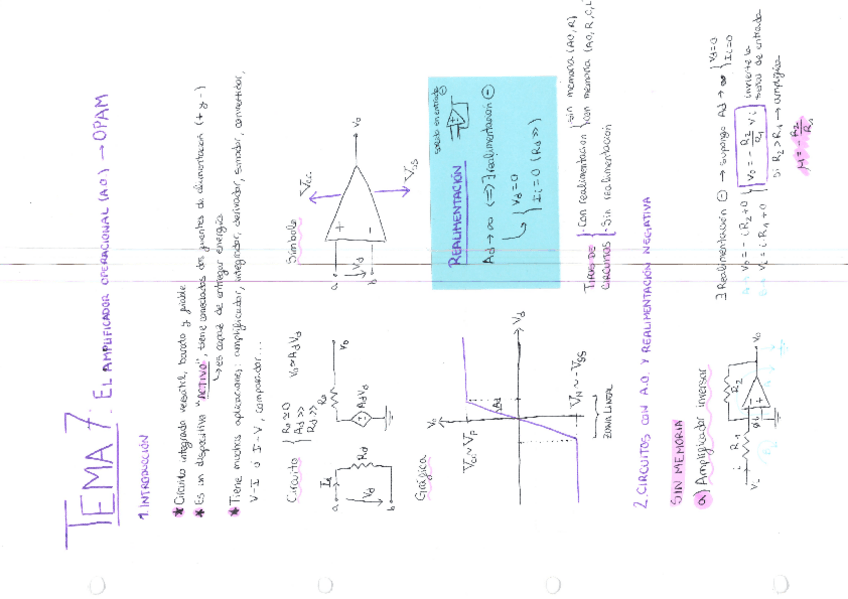 TEMA 7: EL AMPLIFICADOR OPERACIONAL (AO) → OPAM
1. INTRODUCCIÓN
* Circuito integrado versátil, barato y fiable.
* Es un dispositivo "ACTIVO", tiene conectadas dos fuentes de alimentación (+ y -)
↳ es capaz de entregar energía
* Tiene muchas aplicaciones: amplificador, integrador, derivador, sumador, convertidor,
V-I o I-V, comparador...
Circuito
Ro ≃ 0
Ad >>
Rd >>
Vo ≈ AdVd
a
b
Vd
Rd
AdVd
Ro
Vo
Símbolo
a
b
Vd
+
-
Vcc
Vss
Vo
Gráfica
Vo
Vcc ~ Vp
Ad
Vd
VN ~ -Vss
ZONA LINEAL
REALIMENTACIÓN
Ad → ∞ <=> ∃ realimentación ⊖
↳ Vd = 0
Ii = 0 (Rd >>)
TIPOS DE CIRCUITOS
- Con realimentación
sin memoria (AO, R)
con memoria (AO, R, C, L
- Sin realimentación
2. CIRCUITOS CON A.O. Y REALIMENTACIÓN NEGATIVA
SIN MEMORIA
a) Amplificador inversor
R1
R2
i
Vo
∃ Realimentación ⊖ → Supongo Ad → ∞
Vd = 0
Ii = 0
Vo = -i·R2 + 0
Vi = i·R1 + 0
Vo = - R2/R1 Vi
invierte la
de entrada
Si R2 > R1 → amplifica
M = - R2/R1